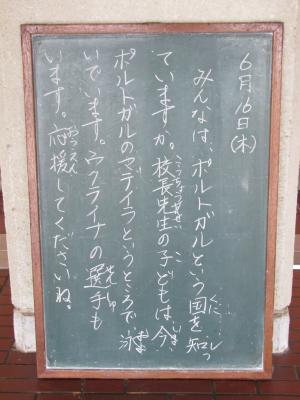 6月16日(木)
みんなは、ポルトガルという国を知っ
ていますか。校長先生の子どもは、今、
ポルトガルのマデイラというところで、泳
いでいます。ウクライナの選手も
います。応援してくださいね。